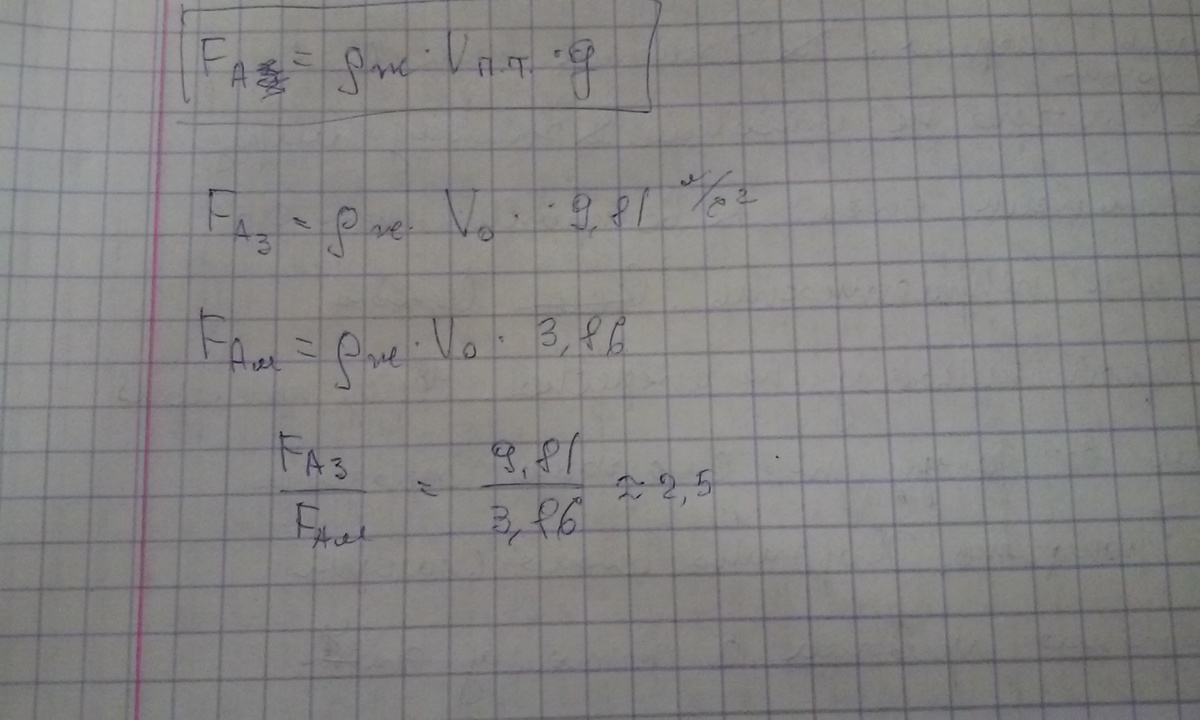 F_A = ρж · Vп.т. · g
F_Aз = ρж · V₀ · · 9,81 м/с²
F_Aм = ρж · V₀ · 3,86
F_Aз / F_Aм = 9,81 / 3,86 ≈ 2,5